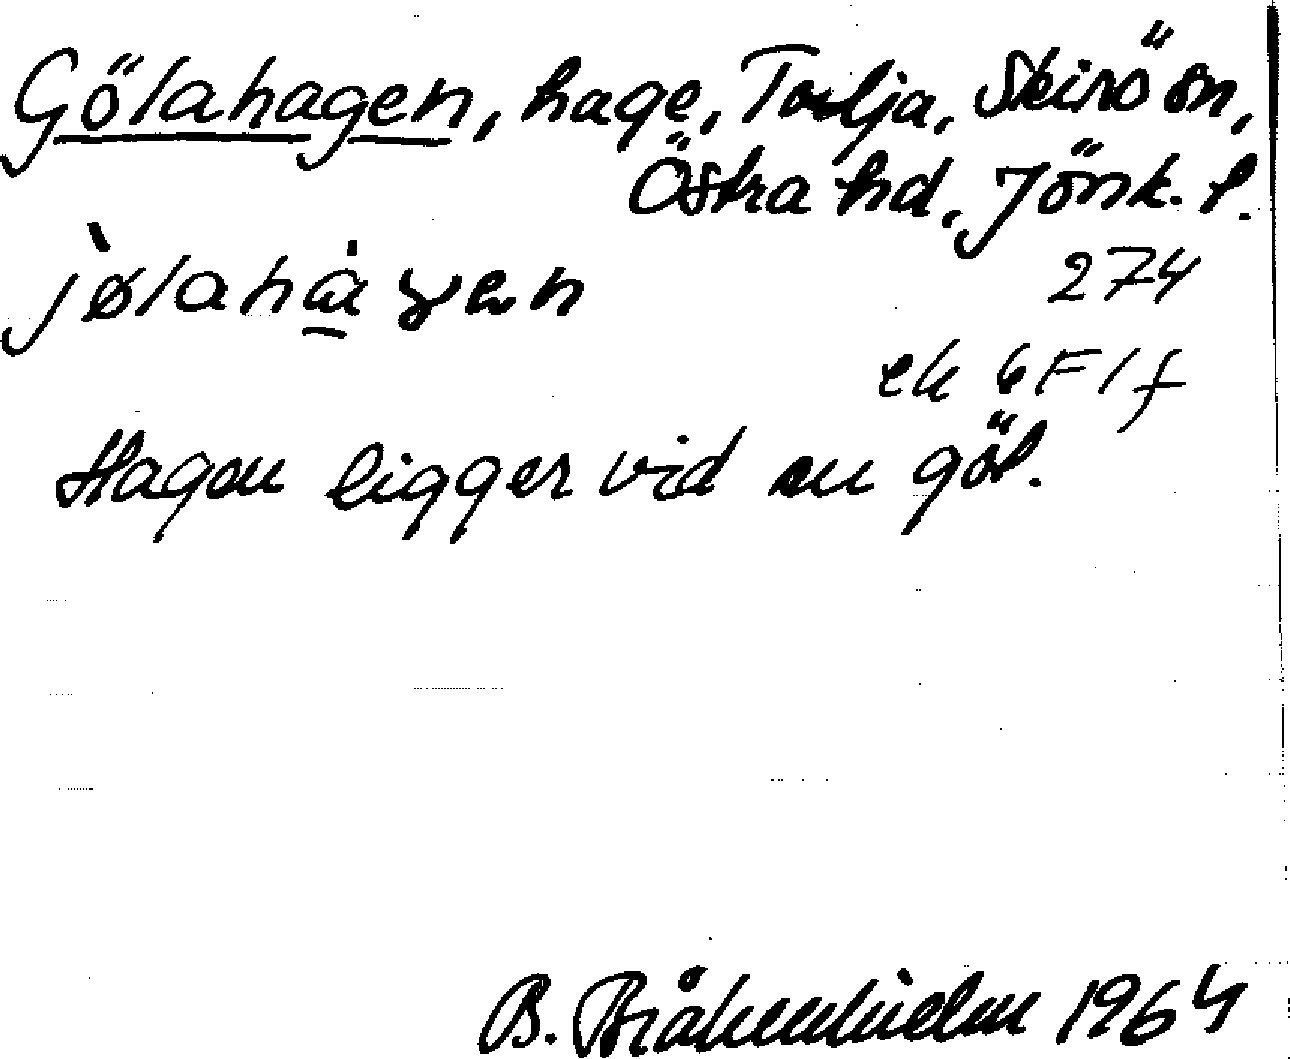 Gölahagen, hage, Tälja, Skirö sn,
Östra hd, Jönk. l.
jø̀lahàɣen
274
ek 6F1f
Hagen ligger vid en göl.
B. Bråkenhielm 1964